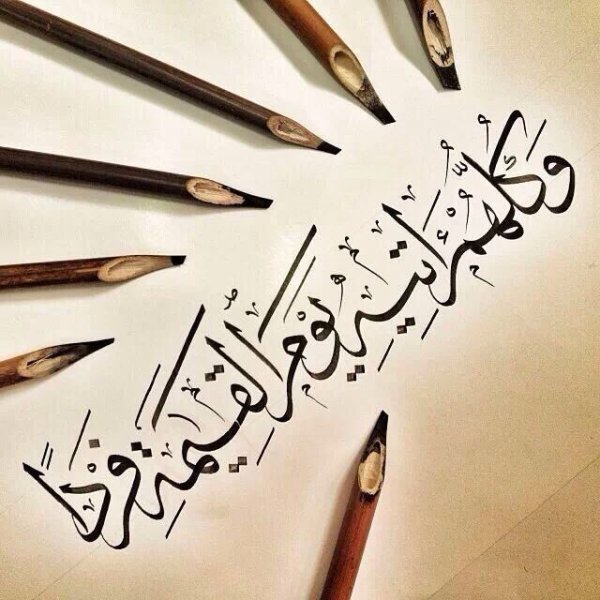 وَكُلُّهُمْ ءَاتِيهِ يَوْمَ الْقِيَمَةِ فَرْدًا